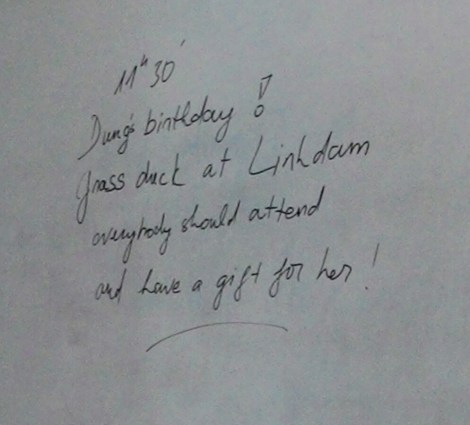 11h30'
Dung's birthday !
grass duck at Linhdam
everybody should attend
and have a gift for her!